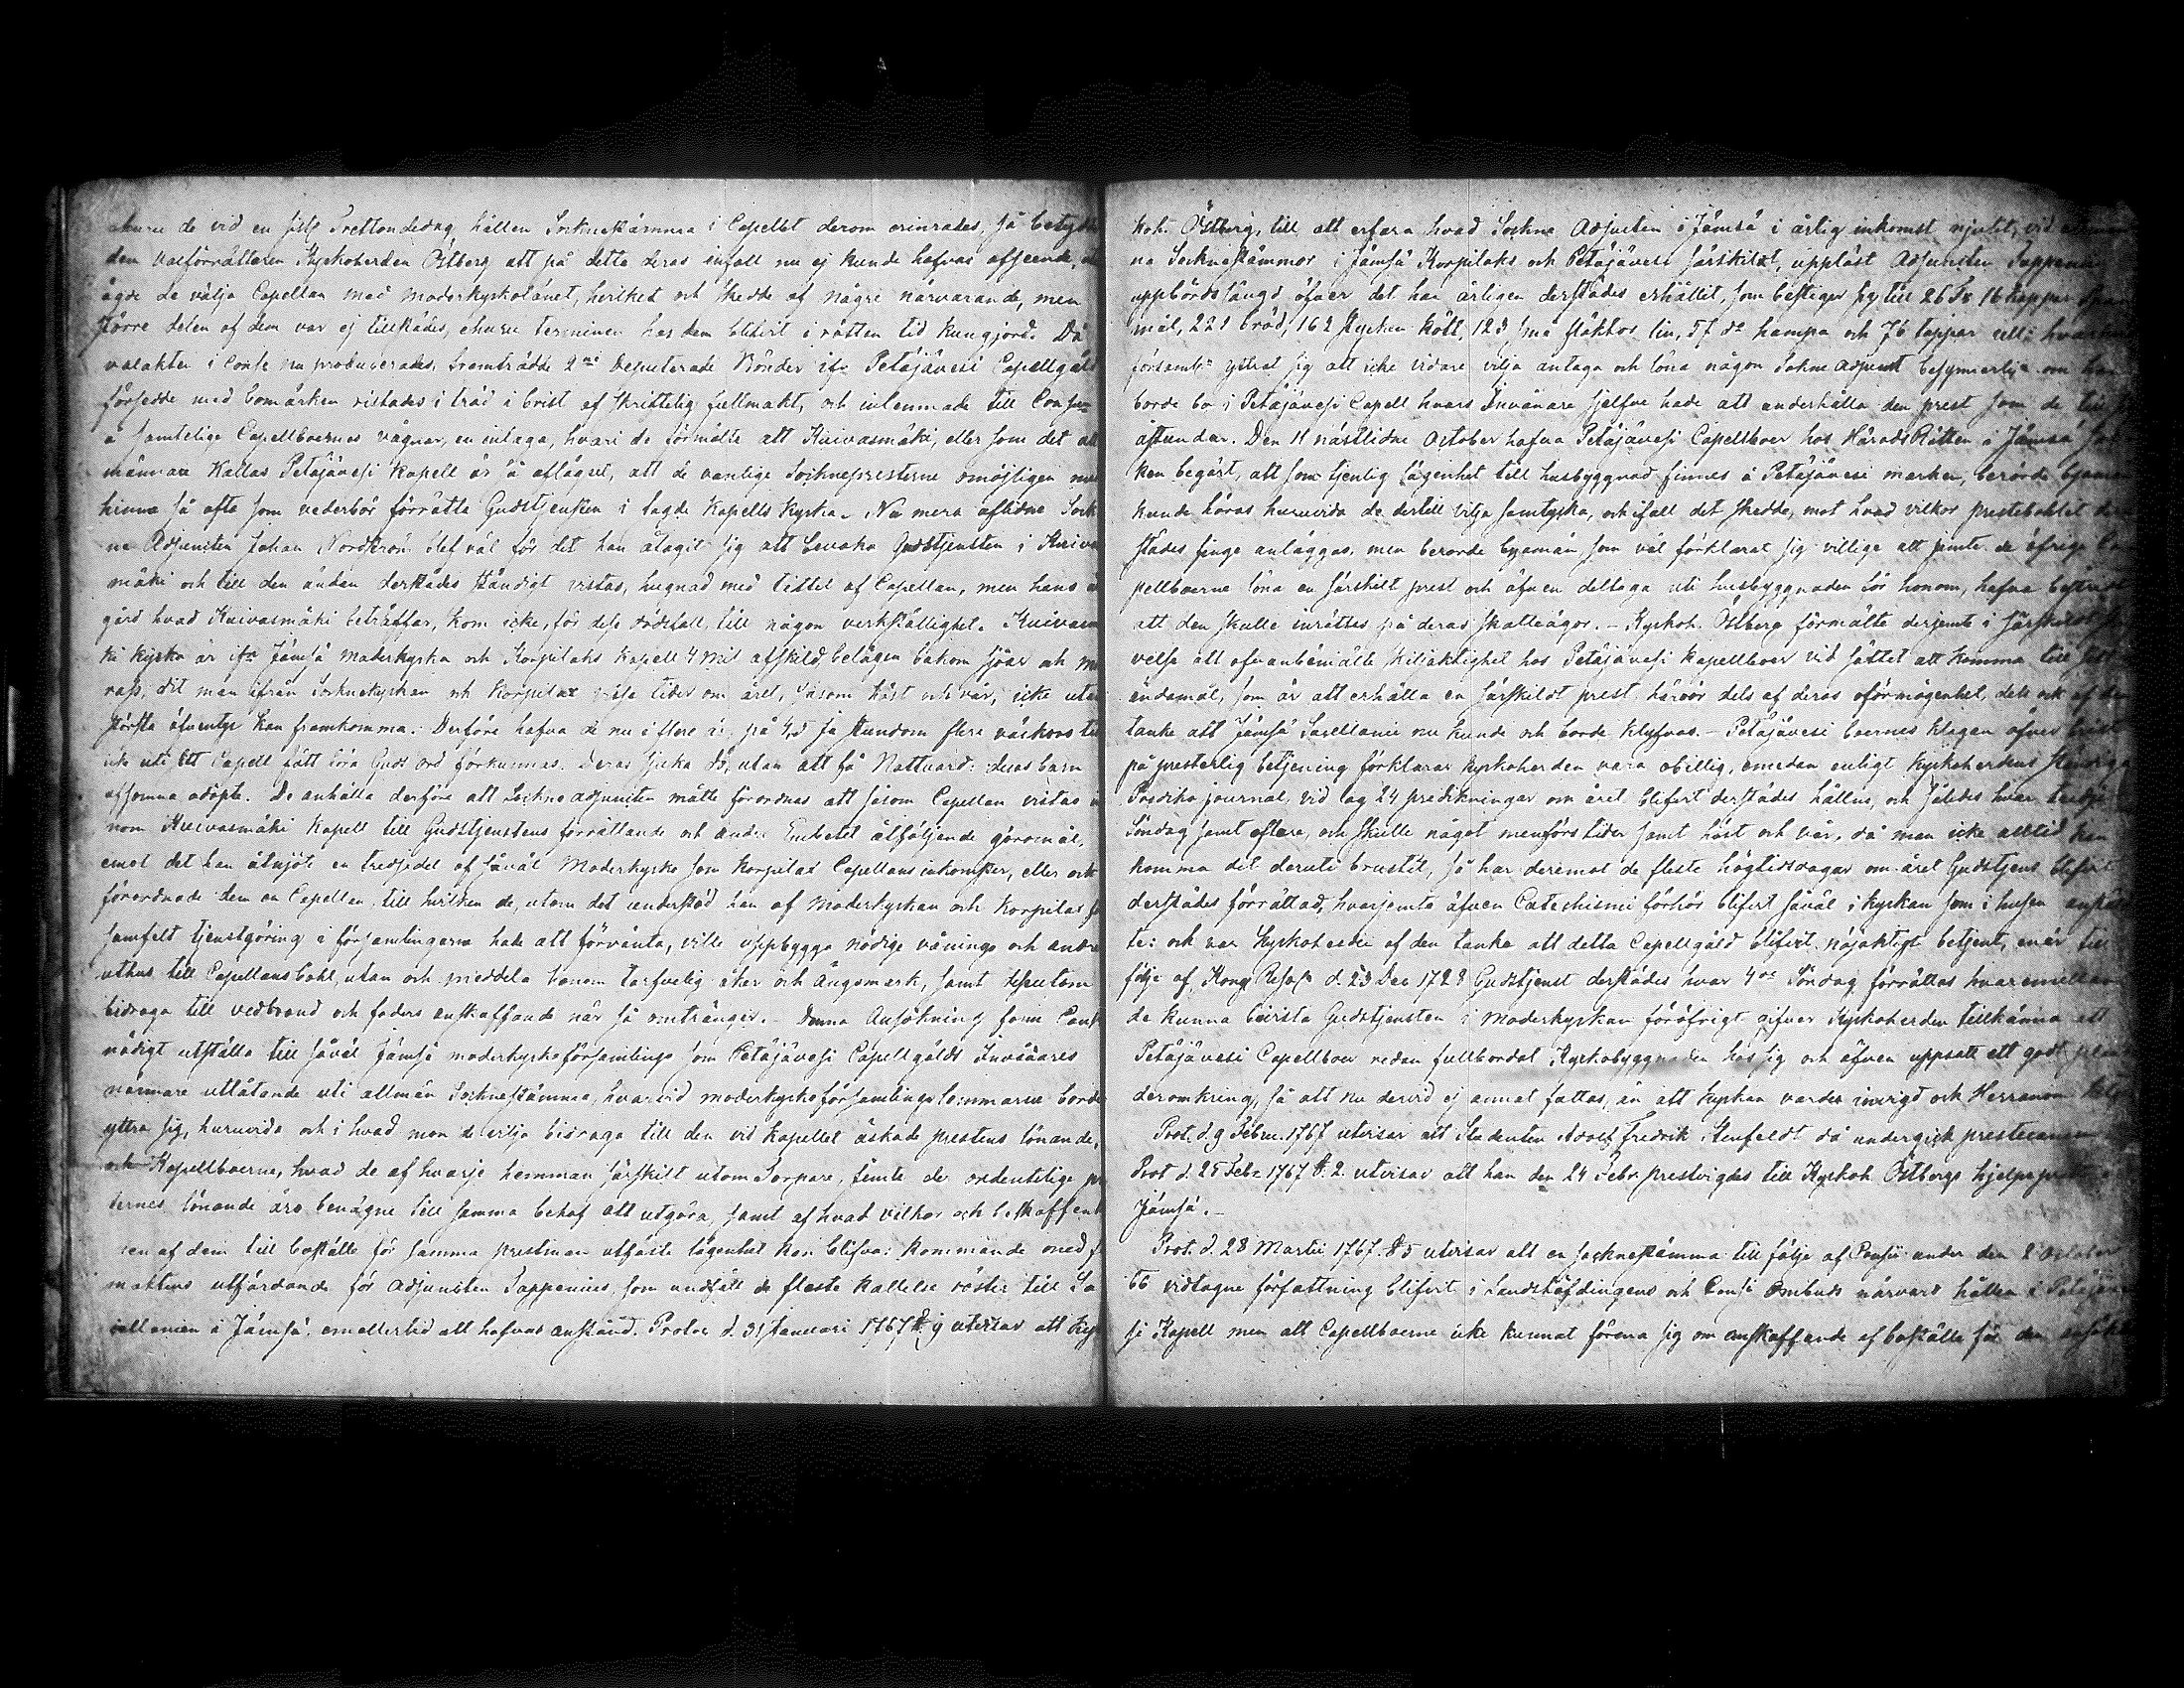 de vid en sistl Trettondedag hållen Socknestämma i Capellet derom erinrades, så betydde
den Valförrättaren Kyrkoherden Östberg att på detta deras infall nu ej kunde hafvas afseende,
ägde de välja Capellan med moderkyrkolänet, hvilket och skedde af någre närvarande, men
större delen af dem var ej tillstädes, ehuru terminen hos dem blifvit i rättan tid kungjord. Då
valakten i Conse nu producerades, framträdde 2ne Deputerade Bönder ifr Petäjävesi Capellgäld
försedde med bomärken ristade i träd i brist af skriftelig fullmakt, och inlemnade till Consist
å samtelige Capellboernes vägnar, en inlaga, hvari de förmälte att Kuivasmäki, eller som det all
männare Kallas Petäjävesi Kapell är så aflägset, att de vanlige Sockneprestene omöjligen
hinna så ofta som vederbör förrätta Gudstjensten i sagde Kapells Kyrka. Nu mera aflidne Sock
ne Adjuncten Johan Nordström blef väl för det han åtagit sig att bevaka Gudstjensten i Kuivas
mäki och till den ändan derstädes ständigt vistas, hugnad med tittel af Capellan, men hans
gärd hvad Kuivasmäki beträffar, kom icke, för dess dödsfall, till någon verkställighet. Kuivasmä
ki kyrka är ifr Jämsä moderkyrka och Korpilaks kapell 4 mil afskild, belägen bakom sjöar och mo
rass, dit man ifrån Socknekyrkan och Korpilax vissa tider om året, såsom höst och vår, icke utan
största äfventyr kan framkomma. Derföre hafva de nu i flere år på 4, ja stundom flere veckors tid
icke uti ett Capell fått höra Guds ord förkunnas. Deras sjuka dö, utan att få Nattvard: deras barn
afsomna odöpte. De anhålla derföre att Sockne adjuncten måtte förordnas att såsom Capellan vistas i
nom Kuivasmäki Kapell till Gudstjenstens förrättande och andre Embetet åtföljande göromål,
emot det han åtnjöte en tredjedel af såväl Moderkyrko som Korpilax Capellans inkomster, eller ock
förordnade dem en Capellan, till hvilken de, utom det understöd han af Moderkyrkan och Korpilax
samfelt tjenstgöring i församlingarna hade att förvänta, ville uppbygga nödige vånings och andre
uthus till Capellansbohl, utan och meddela honom tarfvelig åker och Ängsmark, samt dessutom
bidraga till vedbrand och foders anskaffande när så omtränges. Denna Ansökning fann Cons
nödigt utställa till såväl Jämsä moderkyrkoförsamlings som Petäjävesi Capellgälds Invånares
närmare utlåtande uti allmän Socknestämma, hvarvid moderkyrkoförsamlings borde
yttra sig, huruvida och i hvad mon de vilja bidraga till den vid Kapellet äskade prestens lönande,
och Kapellboerne, hvad de af hvarje hemman särskilt utom Torpare, jämte de ordentelige pre
sternes lönande äro benägne till samma behof att utgöra, samt af hvad vilkor och beskaffenh
den af dem till boställe för samma prestman utfäste lägenhet kan blifva: kommande med f
maktens utfärdande för Adjuncten Tappenius, som undfått de fleste kallelse röster till Sa
cellanien i Jämsä, emellertid att hafvas anstånd. Protoc d. 31 Januari 1767 § 9 utvisar att Kyr
koh. Östberg, till att erfara hvad Sockne Adjuncten i Jämsä i årlig inkomst njutit, vid allmän
na Socknestämmor i Jämsä Korpilaks och Petäjävesi särskildt, uppläst Adjuncten Tappenii
uppbördslängd öfver det han årligen derstädes erhållit, som bestiger sig till 26 Tr 16 kappar Span
mål, 221 bröd, 162 stycken kött, 123 små fläktor lin, 57 do hampa och 76 toppar ull: hvar
församln yttrat sig att icke vidare vilja antaga och löna någon Sokne Adjunct besynnerlig om han
borde bo i Petäjävesi Capell hvars Invånare sjelfve hade att underhålla den prest som de till
åstundar. Den 11 nästlidne October hafva Petäjävesi Capellboer hos Härads Rätten i Jämsä Sock
ken begärt, att som tjenlig lägenhet till husbyggnad finnes å Petäjävesi marken, berörde byamän
kunde höras huruvida de dertill vilja samtycka, och ifall det skedde, mot hvad vilkor prestebohlet der
städes finge anläggas, men berörde byamän, som väl förklarat sig villige att jemte de öfrige Ca
pellboerne löna en särskilt prest och äfven deltaga uti husbyggnaden för honom, hafva bestridt
att den skulle inrättas på deras skatteägor. – Kyrkoh. Östberg förmälte derjemte i särskildt
velse att ofvanbemälte skiljaktighet hos Petäjävesi Kapellboer vid sättet att komma till sitt
ändamål, som är att erhålla en särskildt prest, härrör dels af deras oförmögenhet, dels ock af den
tanke att Jämsä Sacellanie nu kunde och borde klyfvas. – Petäjävesi boernes klagan öfver brist
på presterlig betjening förklarar Kyrkoherden vara obillig, emedan enligt Kyrkoherdens ständiga
Prediko journal, vid lag 24 predikningar om året blifvit derstädes hållne, och således hvar tredje
Söndag samt oftare, och skulle något menförs tider samt höst och vår, då man icke alltid kan
komma dit deruti brustit, så har deremot de fleste högtidsdagar om året Gudstjenst blifvit
derstädes förrättad, hvarjemte äfven Catechismi förhör blifvit såväl i kyrkan som i husen anstäl
te: och var Kyrkoherden af den tanka att detta Capellgäld blifvit nöjaktigt betjent, enär till
följe af Kongl Resol d. 23 Dec 1728 Gudstjenst derstädes hvar 4de Söndag förrättas hvaremellan
de kunna bevista Gudstjensten i Moderkyrkan föröfrigt gifver Kyrkoherden tillkänna att
Petäjävesi Capellboer redan fullbordat Kyrkobyggnaden hos sig och äfven uppsatt ett godt plank
deromkring, så att nu dervid ej annat fattas, än att kyrkan varder invigd och Herranom helgad
Prot. d. 9 Febru. 1767 utvisar att Studenten Adolf Fredrik Stenfeldt då undergick prestexamen
Prot d. 25 Febr 1767 §. 2. utvisar att han den 24 Febr prestvigdes till Kyrkoh Östbergs hjelpeprest i
Jämsä. –
Prot. d. 28 Martii 1767. § 5 utvisar att en socknestämma till följe af Consii under den 8 October
66 vidtagne författning blifvit i Landshöfdingens och Consi Ombuds närvaro hållen i Petäjäve
si Kapell men att Capellboerne icke kunnat förena sig om anskaffande af boställe för den